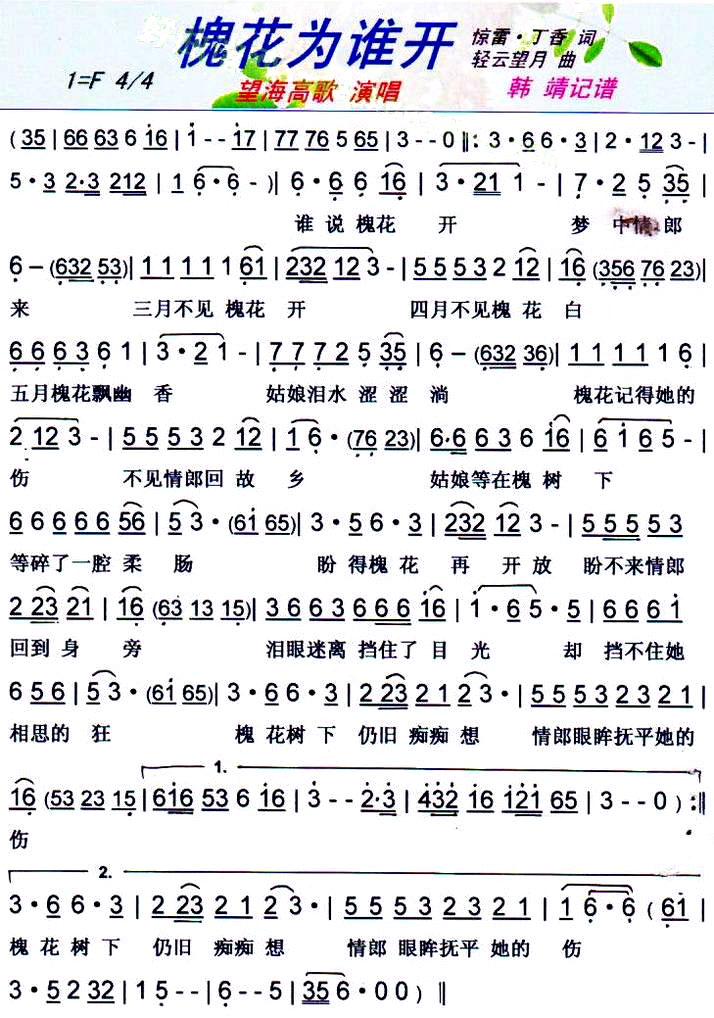 槐花为谁开
惊雷·丁香 词
轻云望月 曲
1=F 4/4
望海高歌 演唱
韩 靖记谱
( 35 | 66 63 6 16 | 1 - - 17 | 77 76 5 65 | 3 - - 0 ‖: 3 · 6 6 · 3 | 2 · 12 3 - |
5 · 3 2·3 212 | 1 6 · 6 - )| 6 · 6 6 16 | 3 · 21 1 - | 7 · 2 5 35 |
谁 说 槐花 开 梦 中情 郎
6 - (632 53)| 1 1 1 1 1 61 | 232 12 3 - | 5 5 5 3 2 12 | 16 (356 76 23)|
来 三月不见 槐花 开 四月不见槐 花 白
6 6 6 3 6 1 | 3 · 2 1 - | 7 7 7 2 5 35 | 6 - (632 36)| 1 1 1 1 1 6 |
五月槐花飘幽 香 姑娘泪水 涩 涩 淌 槐花记得她的
2 12 3 - | 5 5 5 3 2 12 | 1 6 · (76 23)| 6·6 6 3 6 16 | 6 1 6 5 - |
伤 不见情郎回 故 乡 姑娘等在槐 树 下
6 6 6 6 6 56 | 5 3 · (61 65)| 3 · 5 6 · 3 | 232 12 3 - | 5 5 5 5 5 3
等碎了一腔 柔 肠 盼 得槐 花 再 开 放 盼不来情郎
2 23 21 | 16 (63 13 15)| 3 6 6 3 6 6 6 16 | 1 · 6 5 · 5 | 6 6 6 1
回到 身 旁 泪眼迷离 挡住了 目 光 却 挡不住她
6 5 6 | 5 3 · (61 65)| 3 · 6 6 · 3 | 2 23 21 2 3 · | 5 5 5 5 3 2 3 2 1 |
相思的 狂 槐 花树 下 仍旧 痴痴 想 情郎眼眸抚平她的
1.
16 (53 23 15 | 616 53 6 16 | 3 - - 2·3 | 432 16 121 65 | 3 - - 0 ) :‖
伤
2.
3 · 6 6 · 3 | 2 23 2 1 2 3 · | 5 5 5 5 3 2 3 2 1 | 1 6 · 6 ( 61 |
槐 花 树 下 仍旧 痴痴 想 情郎 眼眸抚平 她的 伤
3 · 5 2 32 | 1 5 - - | 6 - - 5 | 35 6 · 0 0 ) ‖